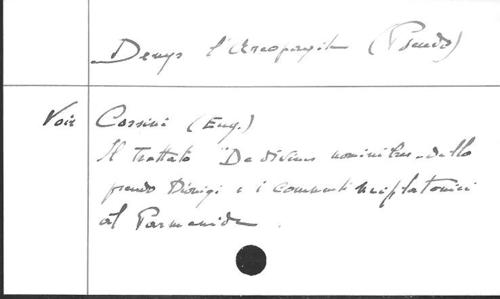 Denys l'Aréopagite (Pseudo)
Voir Corsini (Eug.)
Il trattato "De divinis nominibus" dello
pseudo Dionigi e i commenti neoplatonici
al Parmenide.